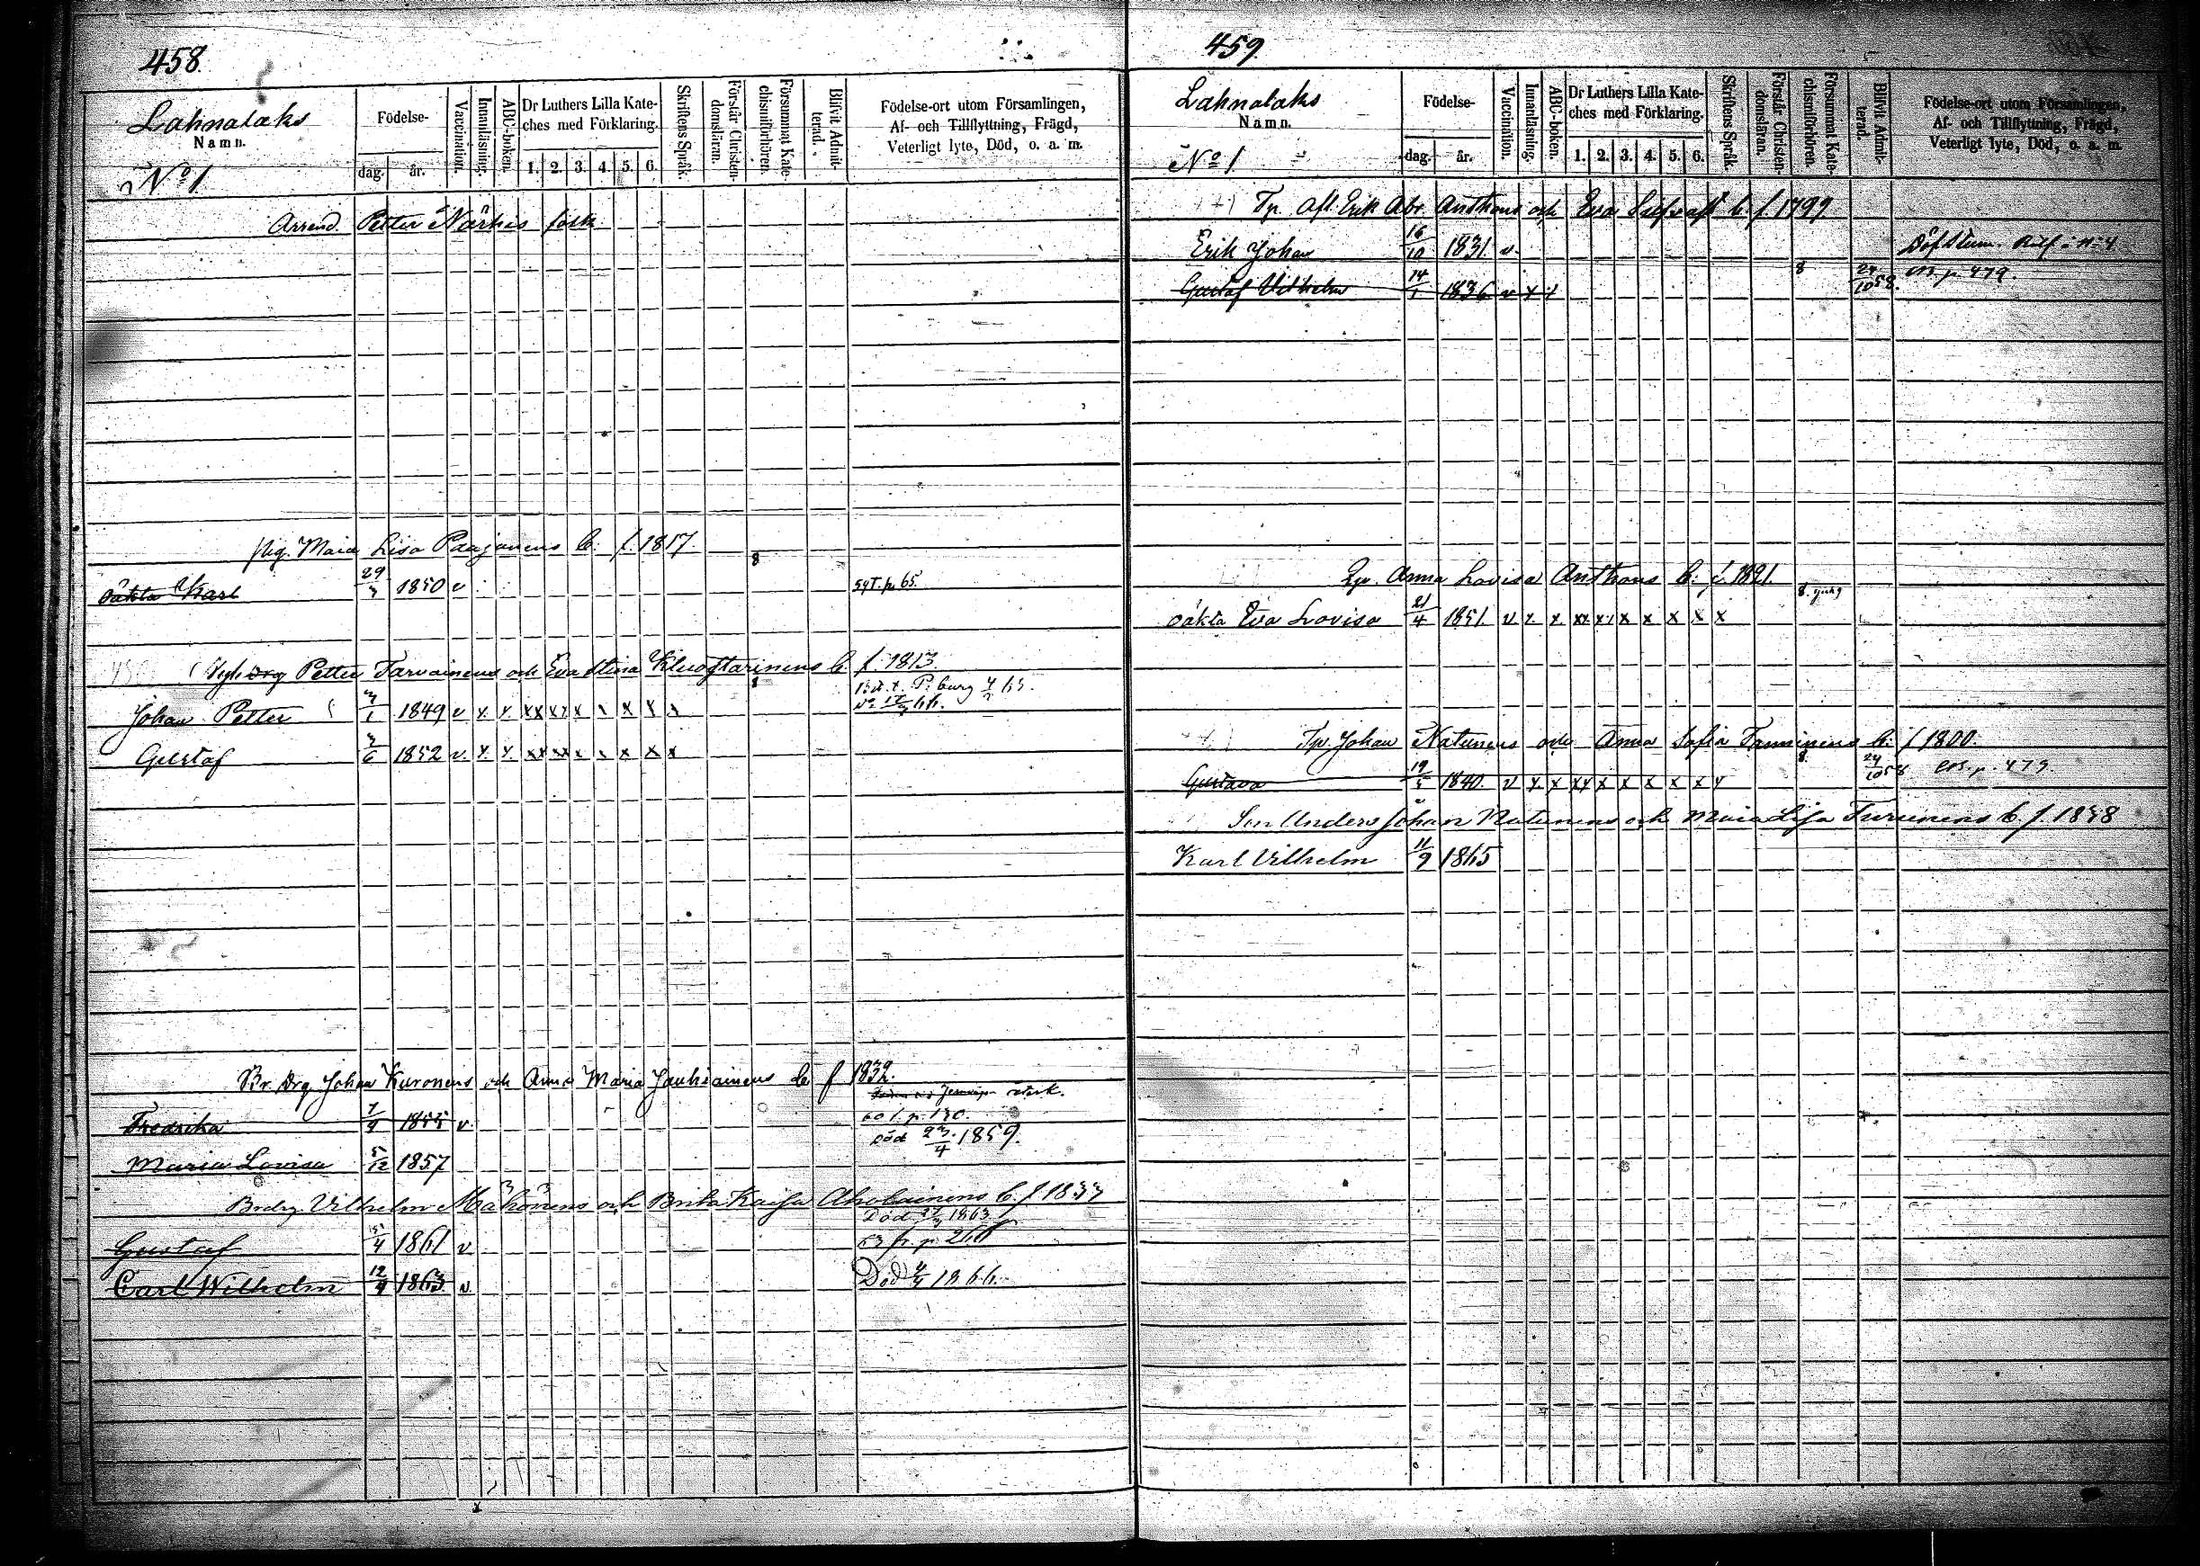 458.
Lahnalaks
Namn.
No 1
Födelse-
dag. år.
Vaccination.
Innanläsning.
ABC-boken.
Dr Luthers Lilla Kate-
ches med Förklaring.
1. 2. 3. 4. 5. 6.
Skriftens Språk.
Förstår Christen-
domsläran.
Försummat Kate-
chismiförhören.
Blifvit Admit-
terad.
Födelse-ort utom Församlingen,
Af- och Tillflyttning, Frägd,
Veterligt lyte, Död, o. a. m.
Arrend. Petter Närhis folk
Pig. Maia Lisa Paajanens b. f. 1817.
8
oäkta Karl 29/3 1850 v p. 65.
Petter Tarvainens och Eva Stina b. f. 1813.
Johan Petter 1849 v x x xx xx x x x x x
Gustaf 1852 v x x xx xx x x x x x
Br. Drg Johan Kuronens och Anna Maria Jauhiainens b. f 1832.
Fredrika 1855 v p. 130.
Död 23/4 1859.
Maria Lovisa 5/12 1857
Vilhelm Mähönens och Brita Kaisa Aholainens b. f 1833
Död 1863
Gustaf 5/4 1861 v
Carl Wilhelm 12/9 1863 v Död 1866.
459.
Lahnalaks
Namn.
No 1.
Födelse-
dag. år.
Vaccination.
Innanläsning.
ABC-boken.
Dr Luthers Lilla Kate-
ches med Förklaring.
1. 2. 3. 4. 5. 6.
Skriftens Språk.
Förstår Christen-
domsläran.
Försummat Kate-
chismiförhören.
Blifvit Admit-
terad.
Födelse-ort utom Församlingen,
Af- och Tillflyttning, Frägd,
Veterligt lyte, Död, o. a. m.
Tp. afl. Erik Abr. Anthons och Eva b. f. 1799.
Erik Johan 16/10 1831 v Döfstum.
Gustaf Vilhelm 14/1 1836 v x x 8 24/10 58. p. 479.
Anna Lovisa Anthons b. f. 1821.
oäkta Eva Lovisa 21/4 1851 v x x xx xx x x x x x
Tp. Johan Natunens och Anna Sofia Tanninens b. f 1800.
Gustava 19/5 1840. v x x xx x x x x x x 8 24/10 58 p. 479.
Son Anders Johan Natunens och Maia Lisa Turunens b. f. 1838
Karl Vilhelm 11/9 1865